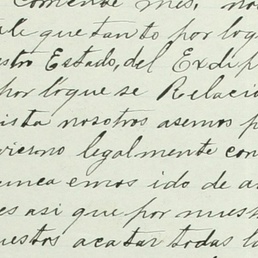 comende mes, no
le que tanto por lo que
stro Estado, del Exdip
por loque se Relacio
ista nosotros asemos p
vierno legalmente con
unca emos ido de a
es asi que por nuest
uestos acatar todas la